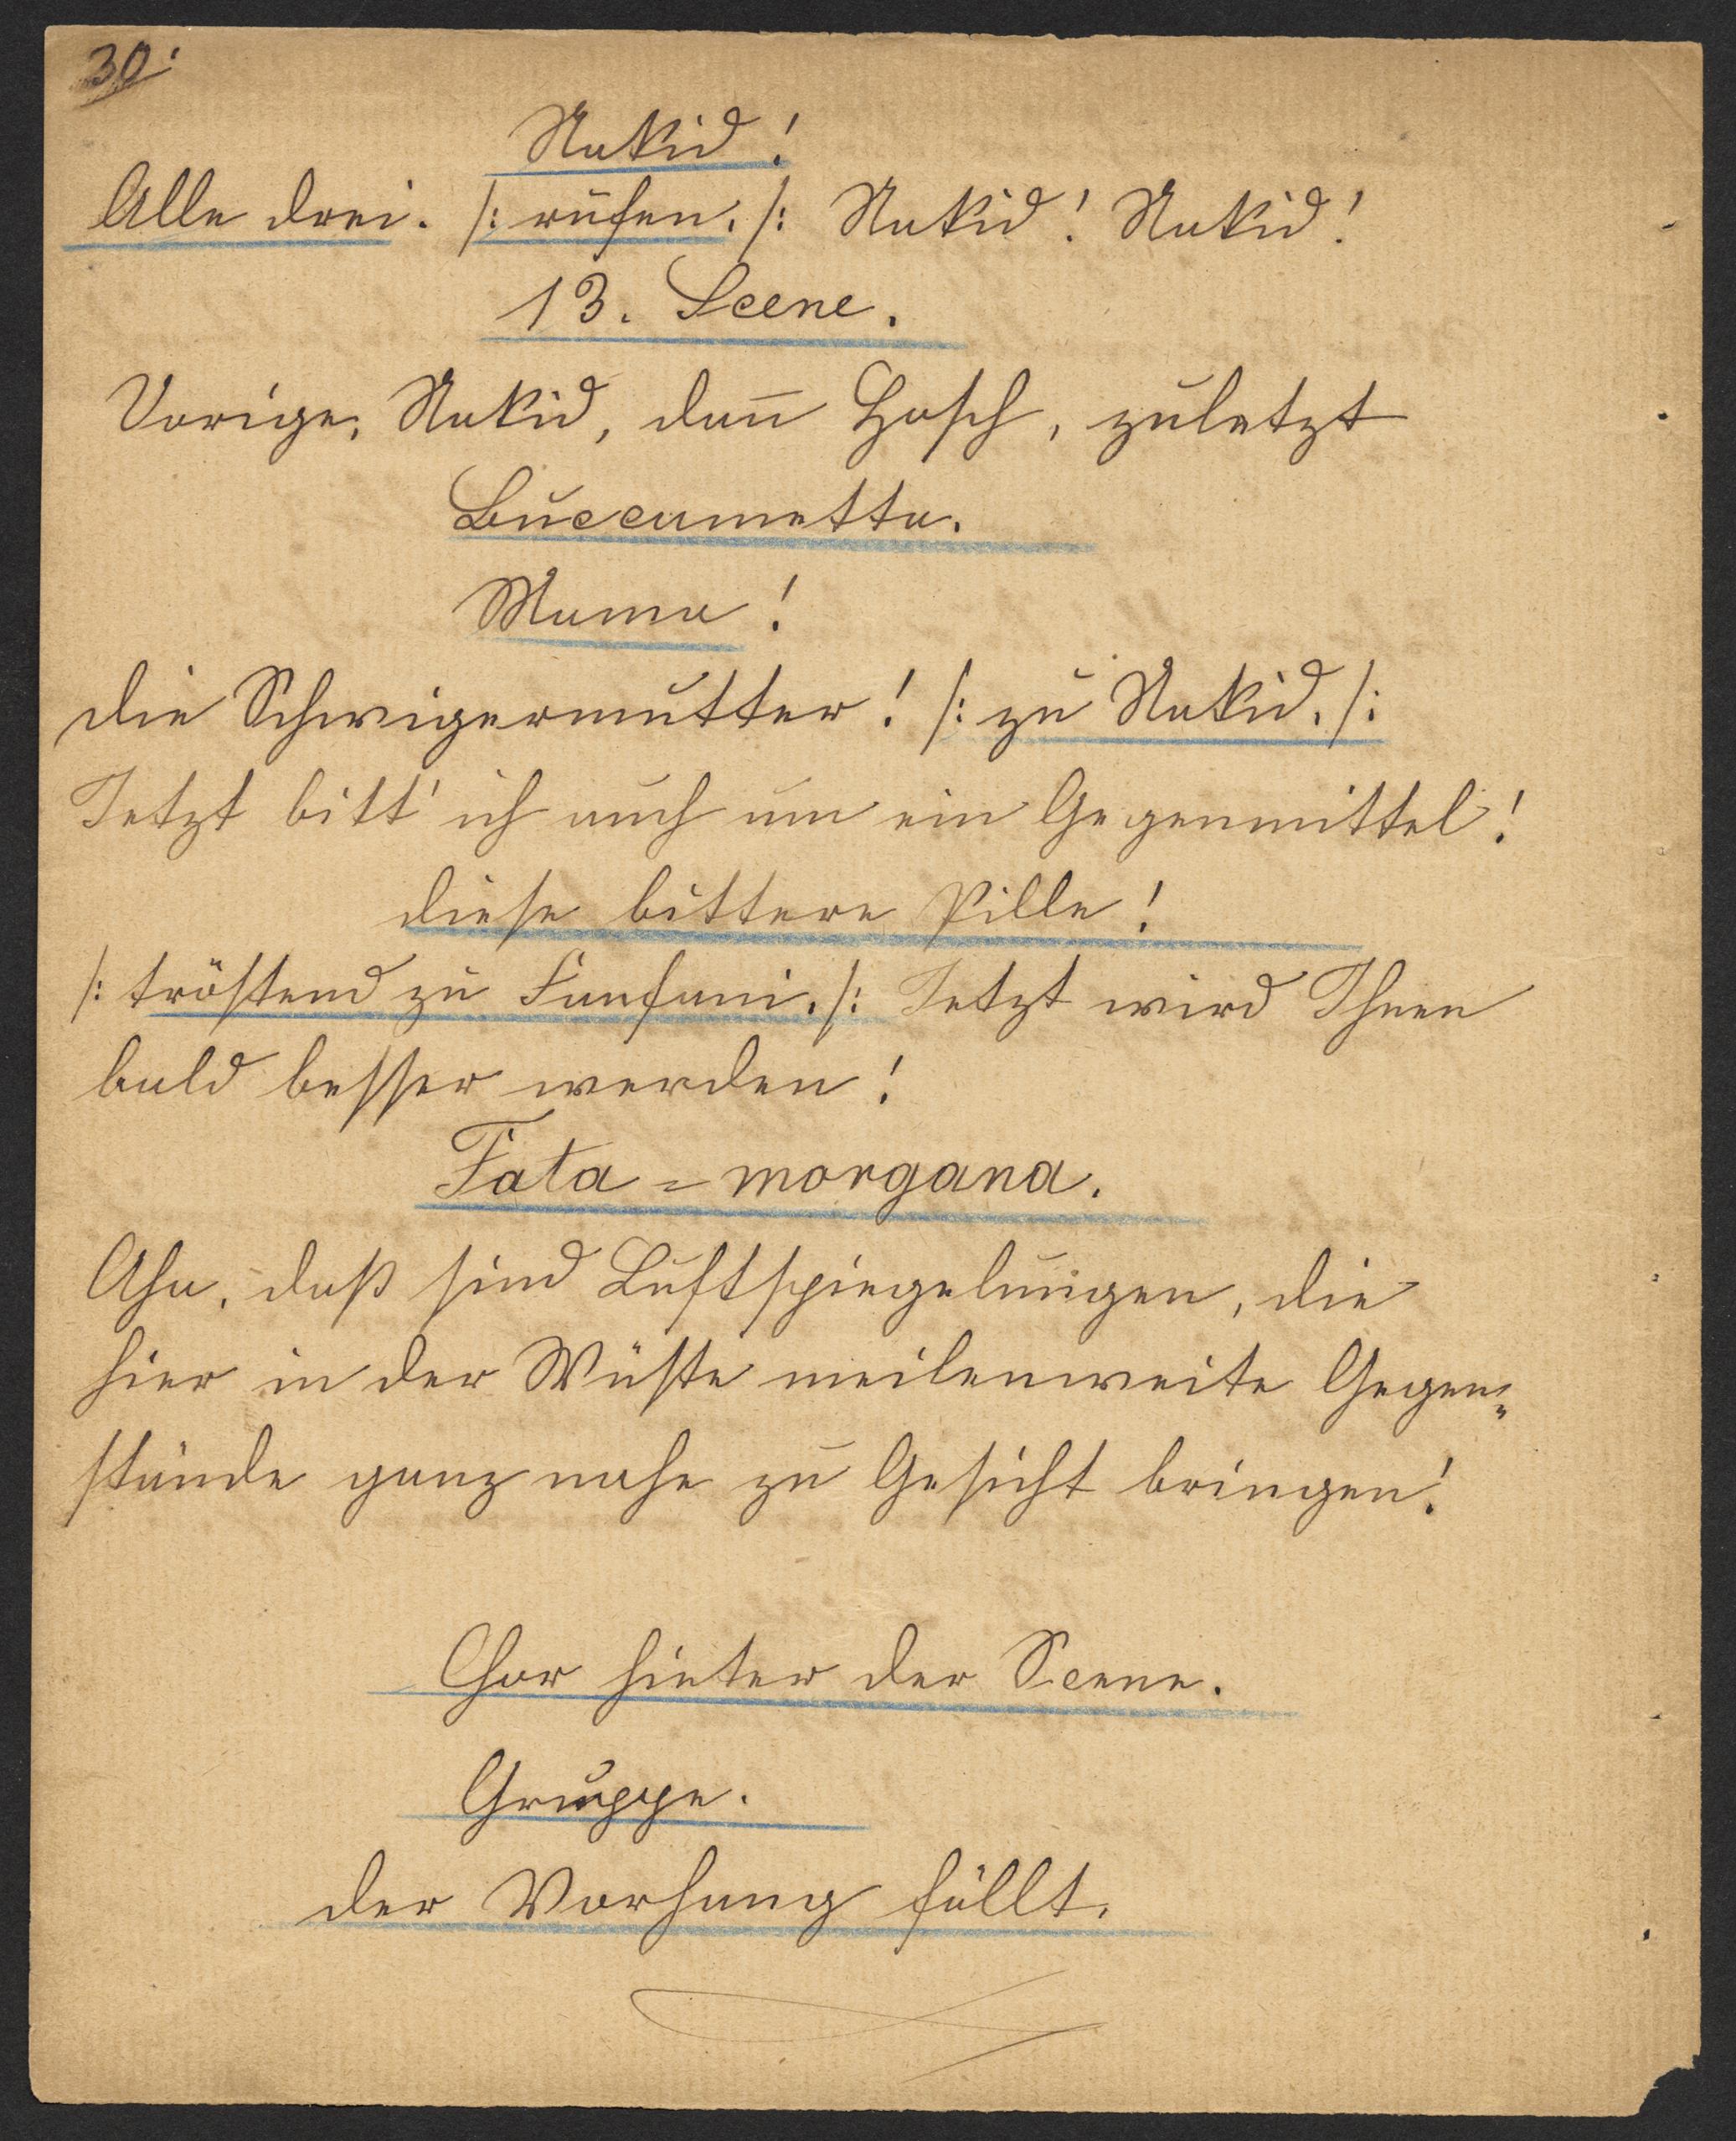 30.
Nakid!
Alle drei. /: rufen. /: Nakid! Nakid!
13. Scene.
Vorige, Nakid, dan̄ Hosch, zuletzt
Buccametta.
Mama!
die Schwigermutter! /: zu Nakid. /:
Jetzt bitt' ich auch um ein Gegenmittel!
diese bittere Pille!
/: tröstend zu Fanfani. /: Jetzt wird Ihnen
bald besser werden!
Fata=morgana.
Aha, daß sind Luftspiegelungen, die
hier in der Wüste meilenweite Gegen=
stände ganz nahe zu Gesicht bringen!
Chor hinter der Scene.
Gruppe.
der Vorhang fällt.